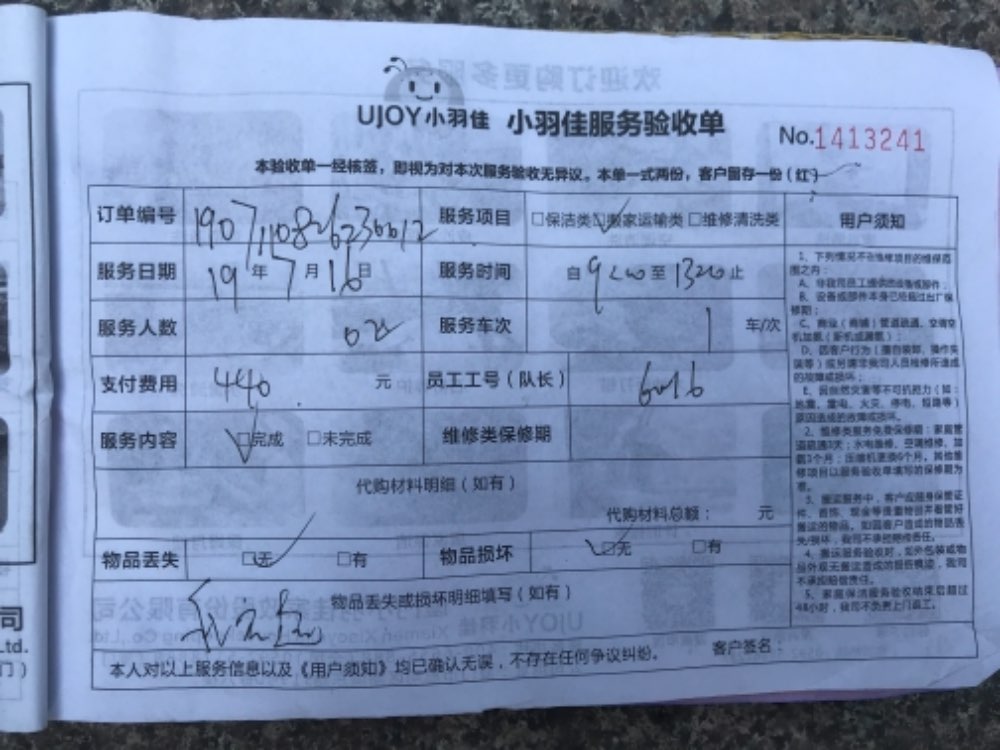 UJOY小羽佳 小羽佳服务验收单
No.1413241
本验收单一经核签，即视为对本次服务验收无异议。本单一式两份，客户留存一份（红）
订单编号
服务项目 □保洁类 □搬家运输类 □维修清洗类
用户须知
服务日期 19 年 7 月 16 日
服务时间 自 9:00 至 1320 止
服务人数 02
服务车次 1 车/次
支付费用 440 元
员工工号（队长） 6016
服务内容 □完成 □未完成
维修类保修期
代购材料明细（如有）
代购材料总额： 元
物品丢失 □无 □有
物品损坏 □无 □有
物品丢失或损坏明细填写（如有）
客户签名：
本人对以上服务信息以及《用户须知》均已确认无误，不存在任何争议纠纷。
1、下列情况不在维修项目的维保范
围之内：
A、非我司员工提供的设备或部件；
B、设备或部件本身已经超过出厂保
修期；
C、商业（商铺）管道疏通、空调空
机加氨（新机或漏氨）；
D、因客户行为（擅自装卸、操作失
误等）或另请非我司人员维修所造成
的故障或损坏；
E、因自然灾害等不可抗拒力（如：
地震、雷电、火灾、停电、短路等）
原因造成的故障或损坏。
2、维修类服务免费保修期：家庭管
道疏通3天；水电维修、空调维修、加
氨3个月；压缩机更换6个月。其他维
修项目以服务验收单填写的保修期为
准。
3、搬运服务中，客户应随身保管证
件、首饰、现金等贵重物品并看管好
搬运的物品，如因客户造成的物品丢
失/损坏，我司不承担赔偿责任。
4、搬运服务验收时，如外包装或物
品外观无搬运造成的损毁痕迹，我司
不承担赔偿责任。
5、家庭保洁服务验收结束后超过
48小时，我司不负责上门返工。
司
Ltd.
门）